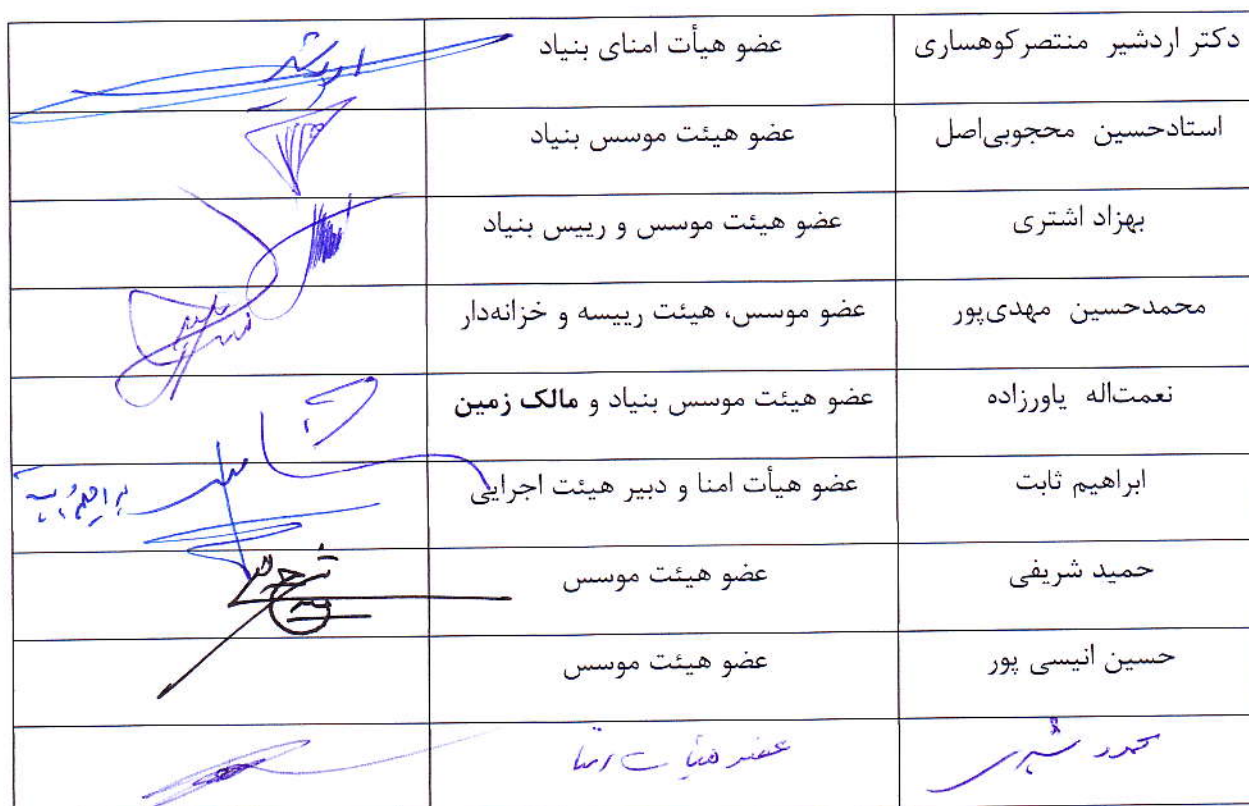 دکتر اردشیر منتصرکوهساری عضو هیأت امنای بنیاد
استادحسین محجوبی‌اصل عضو هیئت موسس بنیاد
بهزاد اشتری عضو هیئت موسس و رییس بنیاد
محمدحسین مهدی‌پور عضو موسس، هیئت رییسه و خزانه‌دار
نعمت‌اله یاورزاده عضو هیئت موسس بنیاد و مالک زمین
ابراهیم ثابت عضو هیأت امنا و دبیر هیئت اجرایی
حمید شریفی عضو هیئت موسس
حسین انیسی پور عضو هیئت موسس
عضو هیأت امنا